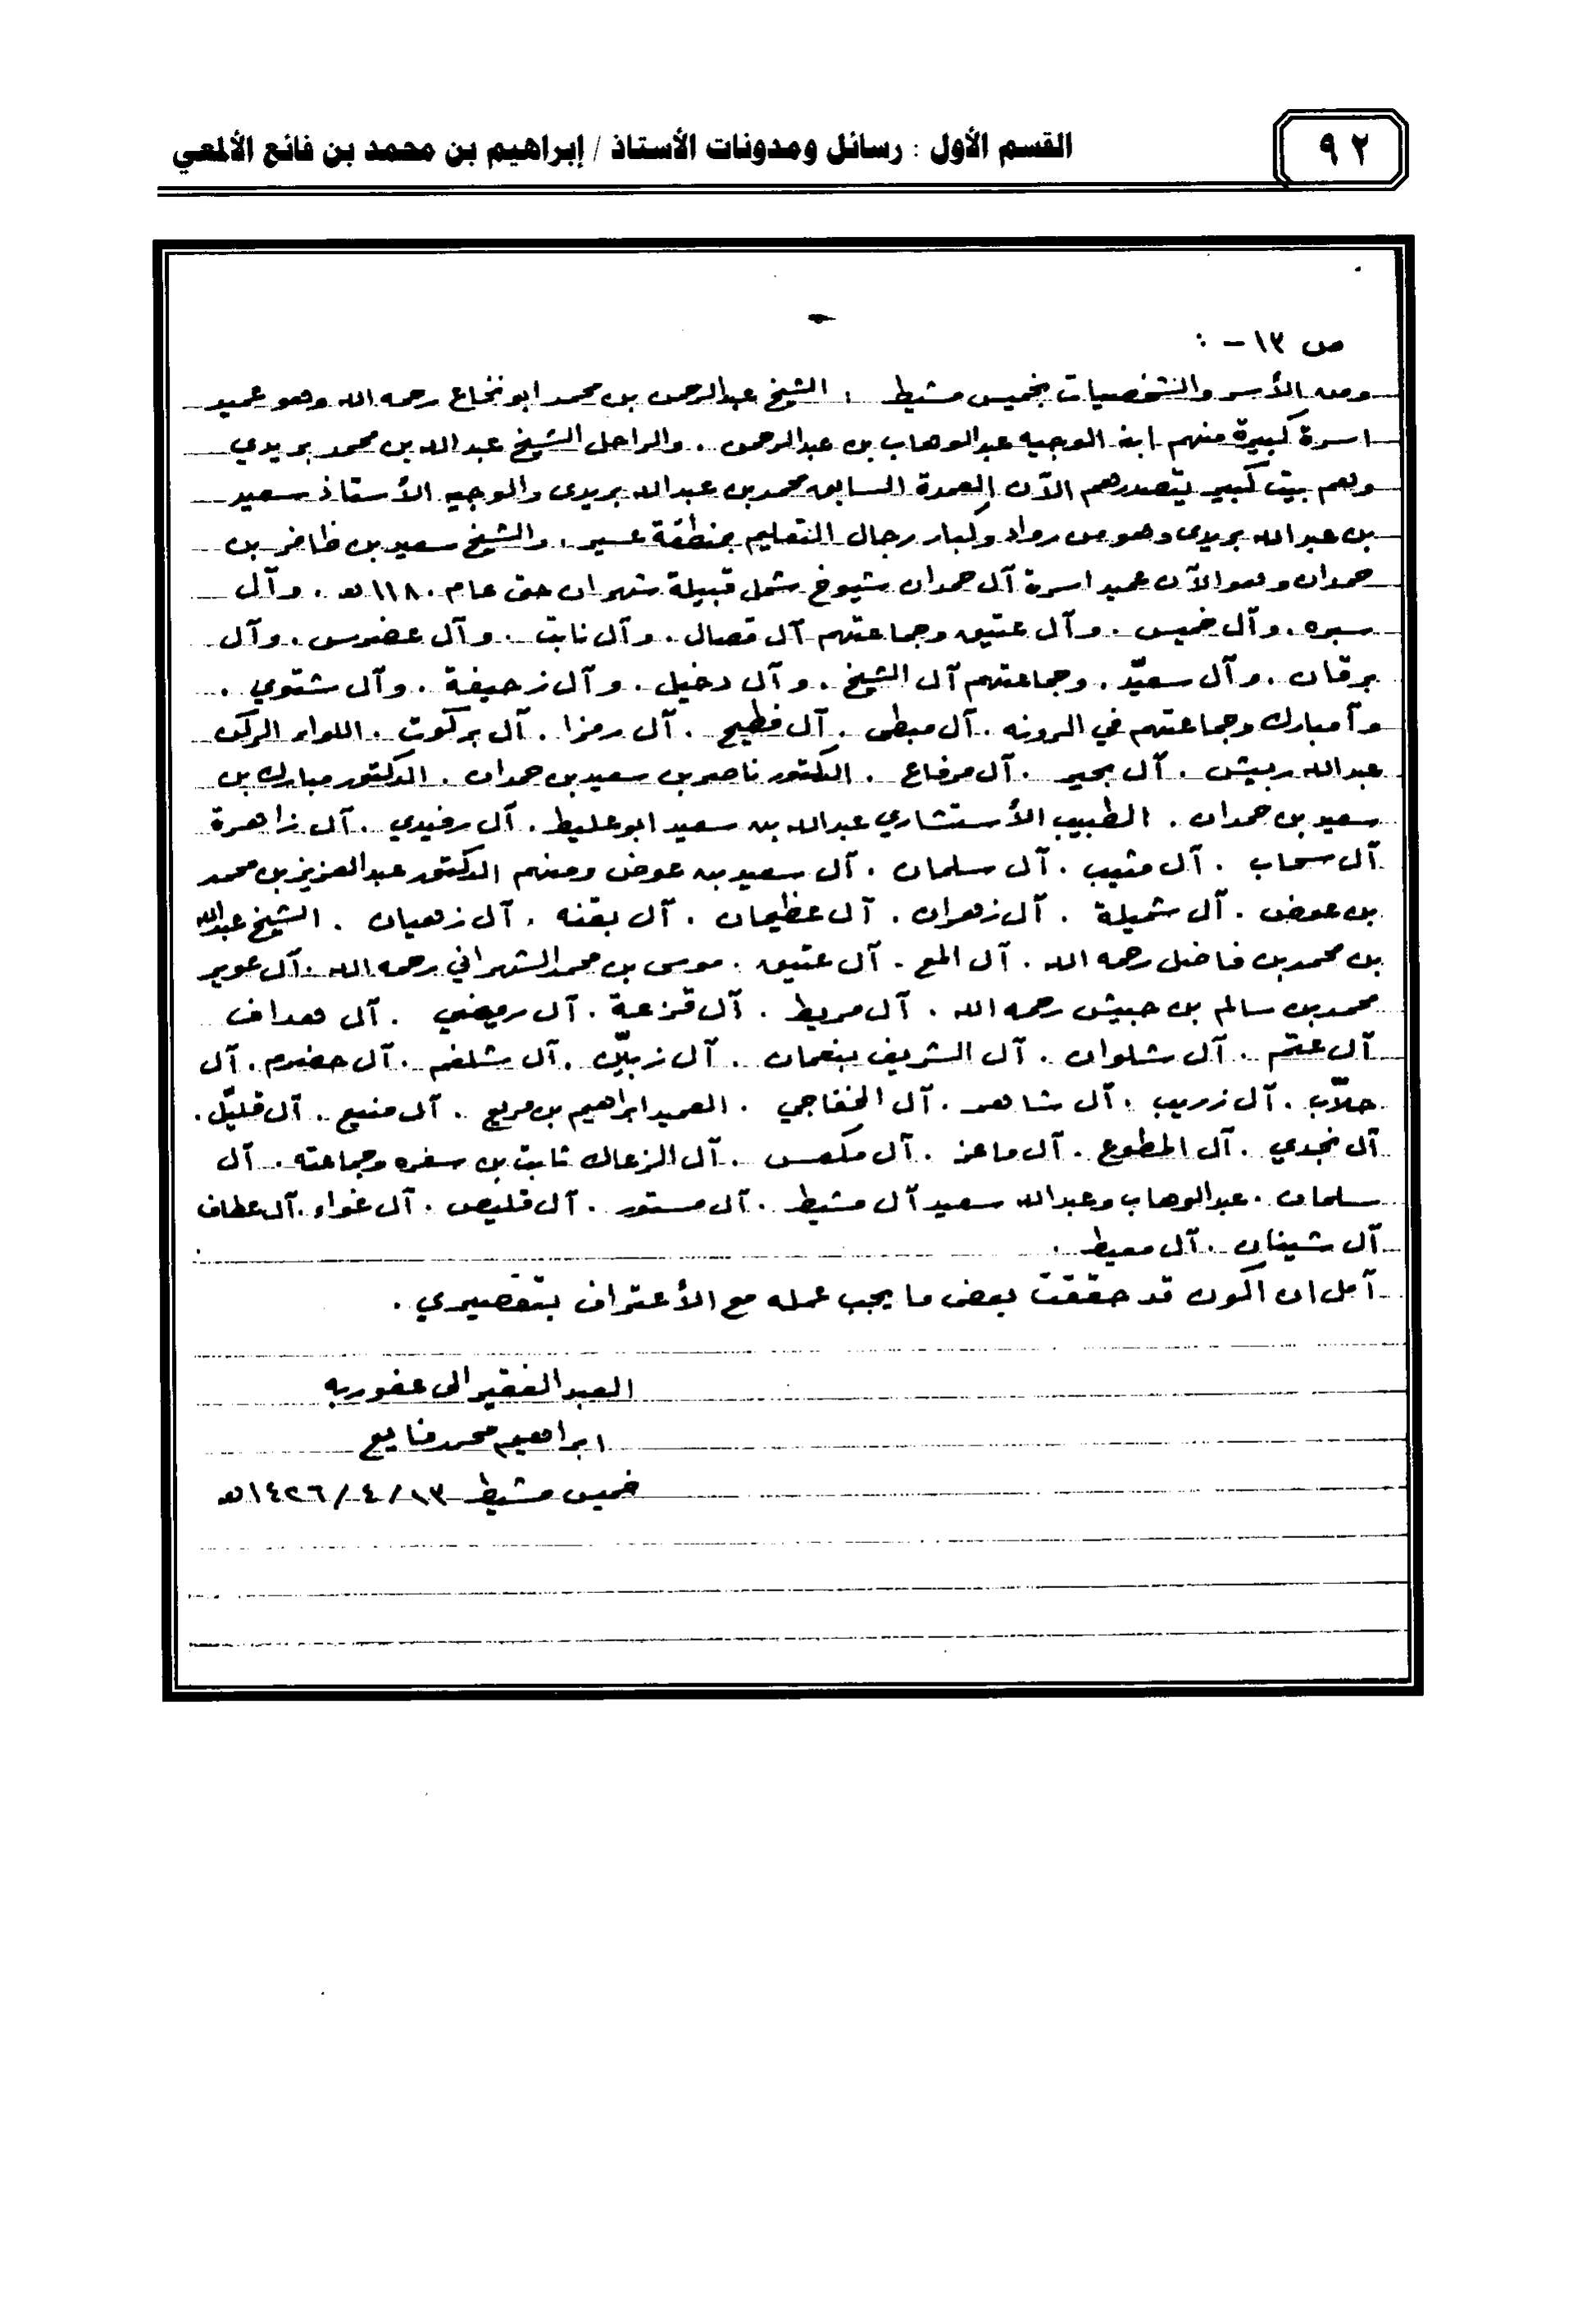 ٩٢
القسم الأول : رسائل ومدونات الأستاذ / إبراهيم بن محمد بن فائع الألمعي
ص ١٣ - :
ومن الأسر والشخصيات بخميس مشيط : الشيخ عبدالرحمن بن محمد ابو نخاع رحمه الله وهو عميد
اسرة كبيرة منهم ابنه الوجيه عبدالوهاب بن عبدالرحمن . والراحل الشيخ عبدالله بن محمد بريدي
ولهم بيت كبير يتصدرهم الآن العمدة السابق محمد بن عبدالله بريدي والوجيه الأستاذ سعيد
بن عبدالله بريدي وهو من رواد وكبار رجال التعليم بمنطقة عسير . والشيخ سعيد بن ظافر بن
حمدان وهو الآن عميد اسرة آل حمدان شيوخ شمل قبيلة شهران حتى عام ١١٨٠ هـ . وآل
سبره . وآل خميس . وآل عتيق وجماعتهم آل قصال . وآل نابت . وآل عضوس . وآل
برقان . وآل سعيّد . وجماعتهم آل الشيخ . وآل دخيل . وآل زحيفة . وآل شتوي .
وآمبارك وجماعتهم في الرونه . آل مبطي . آل فطيح . آل رمزا . آل بركوت . اللواء الركن
عبدالله ربيش . آل بجير . آل مرفاع . الدكتور ناصر بن سعيد بن حمدان . الدكتور مبارك بن
سعيد بن حمدان . الطبيب الأستشاري عبدالله بن سعيد ابو عليط . آل رفيدي . آل زاهرة
آل سحاب . آل مثيب . آل سلمان . آل سعيد بن عوض ومنهم الدكتور عبدالعزيز بن محمد
بن عوض . آل شميلة . آل زهران . آل عظيمان . آل بقنه . آل زهيان . الشيخ عبدالله
بن محمد بن فاضل رحمه الله . آل المع . آل عتيق . موسى بن محمد الشهراني رحمه الله . آل عوير
محمد بن سالم بن حبيش رحمه الله . آل مريط . آل قزعة . آل رميضي . آل هداف
آل عتم . آل شلوان . آل الشريف بنعمان . آل زبيّن . آل شلغم . آل حضرم . آل
حلّاب . آل زريب . آل شاهر . آل الخفاجي . العميد ابراهيم بن مريع . آل منيع . آل قليّل .
آل نجدي . آل المطوع . آل ماعز . آل مكعس . آل الزعاك ثابت بن سفره وجماعته . آل
سلمان . عبدالوهاب وعبدالله سعيد آل مشيط . آل مستور . آل قليص . آل غواء . آل عطاف
آل شينان . آل معيط .
آمل ان اكون قد حققت بعض ما يجب عمله مع الأعتراف بتقصيري .
العبد الفقير الى عفو ربه
ابراهيم محمد فايع
خميس مشيط ١٣ / ٤ / ١٤٢٦هـ